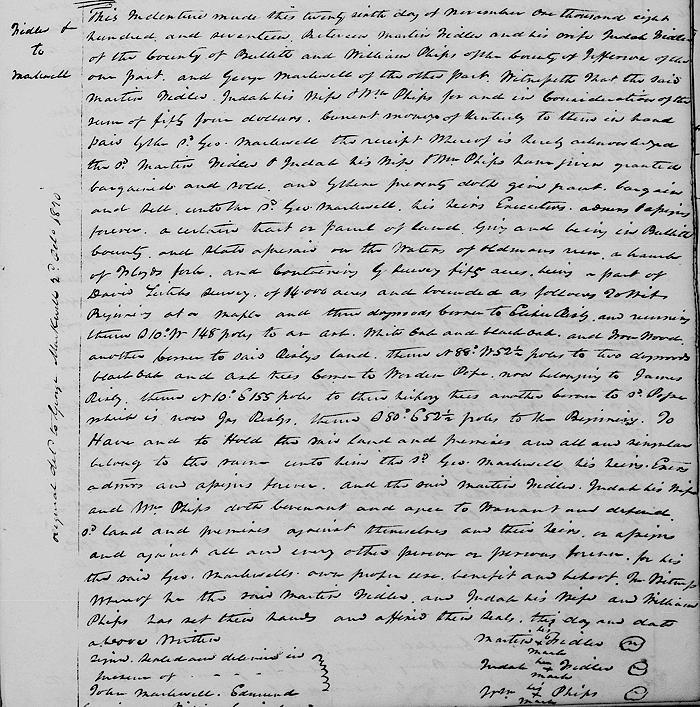 Fidler &
to
Markwell
This Indenture made this twenty sixth day of November One thousand eight
hundred, and seventeen, Between Martin Fidler and his wife Judah Fidler
of the County of Bullitt and William Phips of the County of Jefferson of the
one part, and George Markwell of the other part, Witnesseth That the said
Martin Fidler, Judah his Wife & Wm Phips for and in Consideration of the
sum of fifty four dollars, Current money of Kentucky to them in hand
paid by the sd Geo. Markwell the receipt Whereof is hereby acknowledged
the sd Martin Fidler & Judah his Wife & Wm Phips have given granted
bargained and sold, and by these presents doth give grant, bargain
and sell, unto the sd Geo Markwell, his heirs Executors, admrs & assigns
forever, a certain tract or parcel of land, lying and being in Bullitt
County, and State aforesaid on the Waters of oldmans run, a branch
of Floyds fork, and Containing by survey fifty acres, being a part of
David survey, of 14000 acres and bounded as follows To Wit
Beginning at a maple and three dogwoods Corner to and running
thence S 10° W 148 poles to an ash, White Oak and black oak, and Iron Wood,
another Corner to said land, thence N 88° W 52½ poles to two dogwoods
black oak and ash trees Corner to Worden Pope, now belonging to James
thence N 10° E 155 poles to three hickory trees another corner to sd Pope
which is now Jas thence S 80° E 52½ poles to the Beginning. To
Have and to Hold the said land and premises and all and singular
belong to the same unto him the sd Geo. Markwell his heirs, Exrs
admrs and assigns forever. and the said Martin Fidler, Judah his Wife
and Wm Phips doth Covenant and agree to Warrant and defend
sd land and premises against themselves and their heirs, or assigns
and against all and every other person or persons forever, for his
the said Geo. Markwells own proper use, benefit and behoof In Witness
Whereof he the said Martin Fidler, and Judah his Wife and William
Phips has set their hands and affixed their seals, this day and date
above Written
Signd. Sealed and delivered in
presence of
John Markwell. Edmund
Martin his x mark Fidler
Judah her x mark Fidler
Wm his x mark Phips
original deld to George Markwell 2d 1820